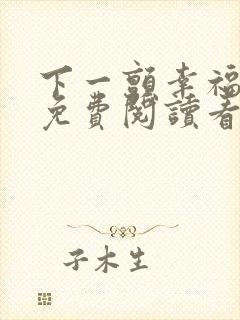 下一顫幸福
免費閱讀看
子木生